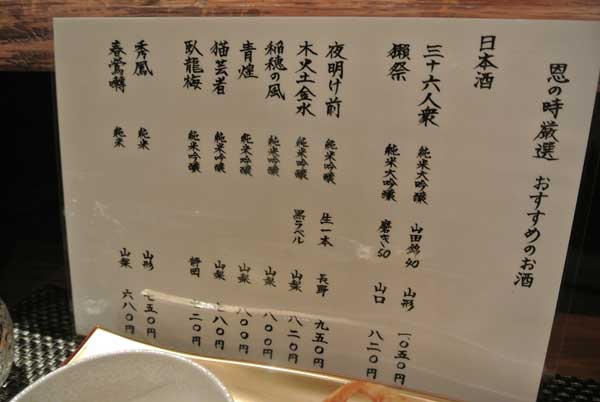 恩の時厳選 おすすめのお酒
日本酒
三十六人衆 純米大吟醸 山田錦40 山形 一〇五〇円
獺祭 純米大吟醸 磨き50 山口 八二〇円
夜明け前 純米吟醸 生一本 長野 九五〇円
木火土金水 純米吟醸 黒ラベル 山梨 八二〇円
稲穂の風 純米吟醸 山梨 八〇〇円
青煌 純米吟醸 山梨 八〇〇円
猫芸者 純米吟醸 山梨 七八〇円
臥龍梅 純米吟醸 静岡 二〇円
秀鳳 純米 山形 七五〇円
春鶯囀 純米 山梨 六八〇円